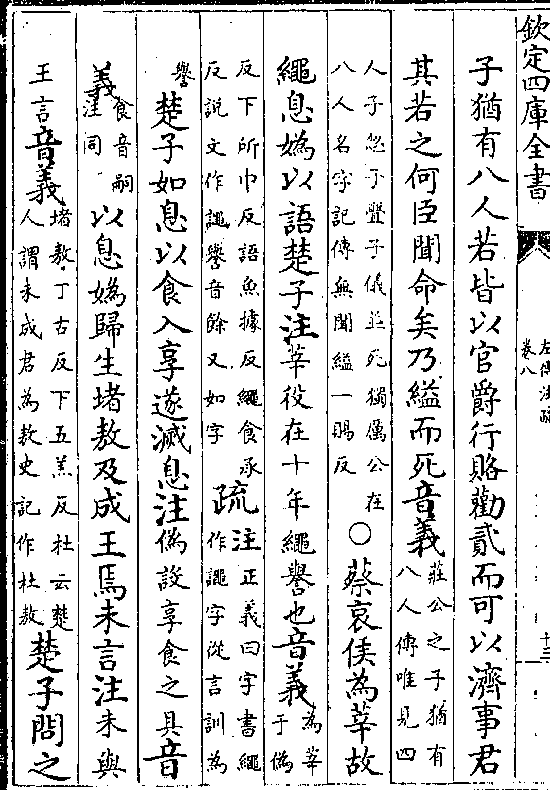 欽定四庫全書
左傳注疏
卷八
十三
子猶有八人若皆以官爵行賂勸貳而可以濟事君
其若之何臣聞命矣乃縊而死音義莊公之子猶有
八人傳唯見四
人子忽子亹子儀並死獨厲公在
八人名字記傳無聞縊一賜反
○蔡哀侯為莘故
繩息媯以語楚子注莘役在十年繩譽也音義為莘
于偽
反下所巾反語魚據反繩食承
反說文作譝譽音餘又如字
疏注正義曰字書繩
作譝字從言訓為
譽
楚子如息以食入享遂滅息注偽設享食之具音
義食音嗣
注同
以息媯歸生堵敖及成王焉未言注未與
王言音義堵敖丁古反下五羔反杜云楚
人謂未成君為敖史記作杜敖
楚子問之